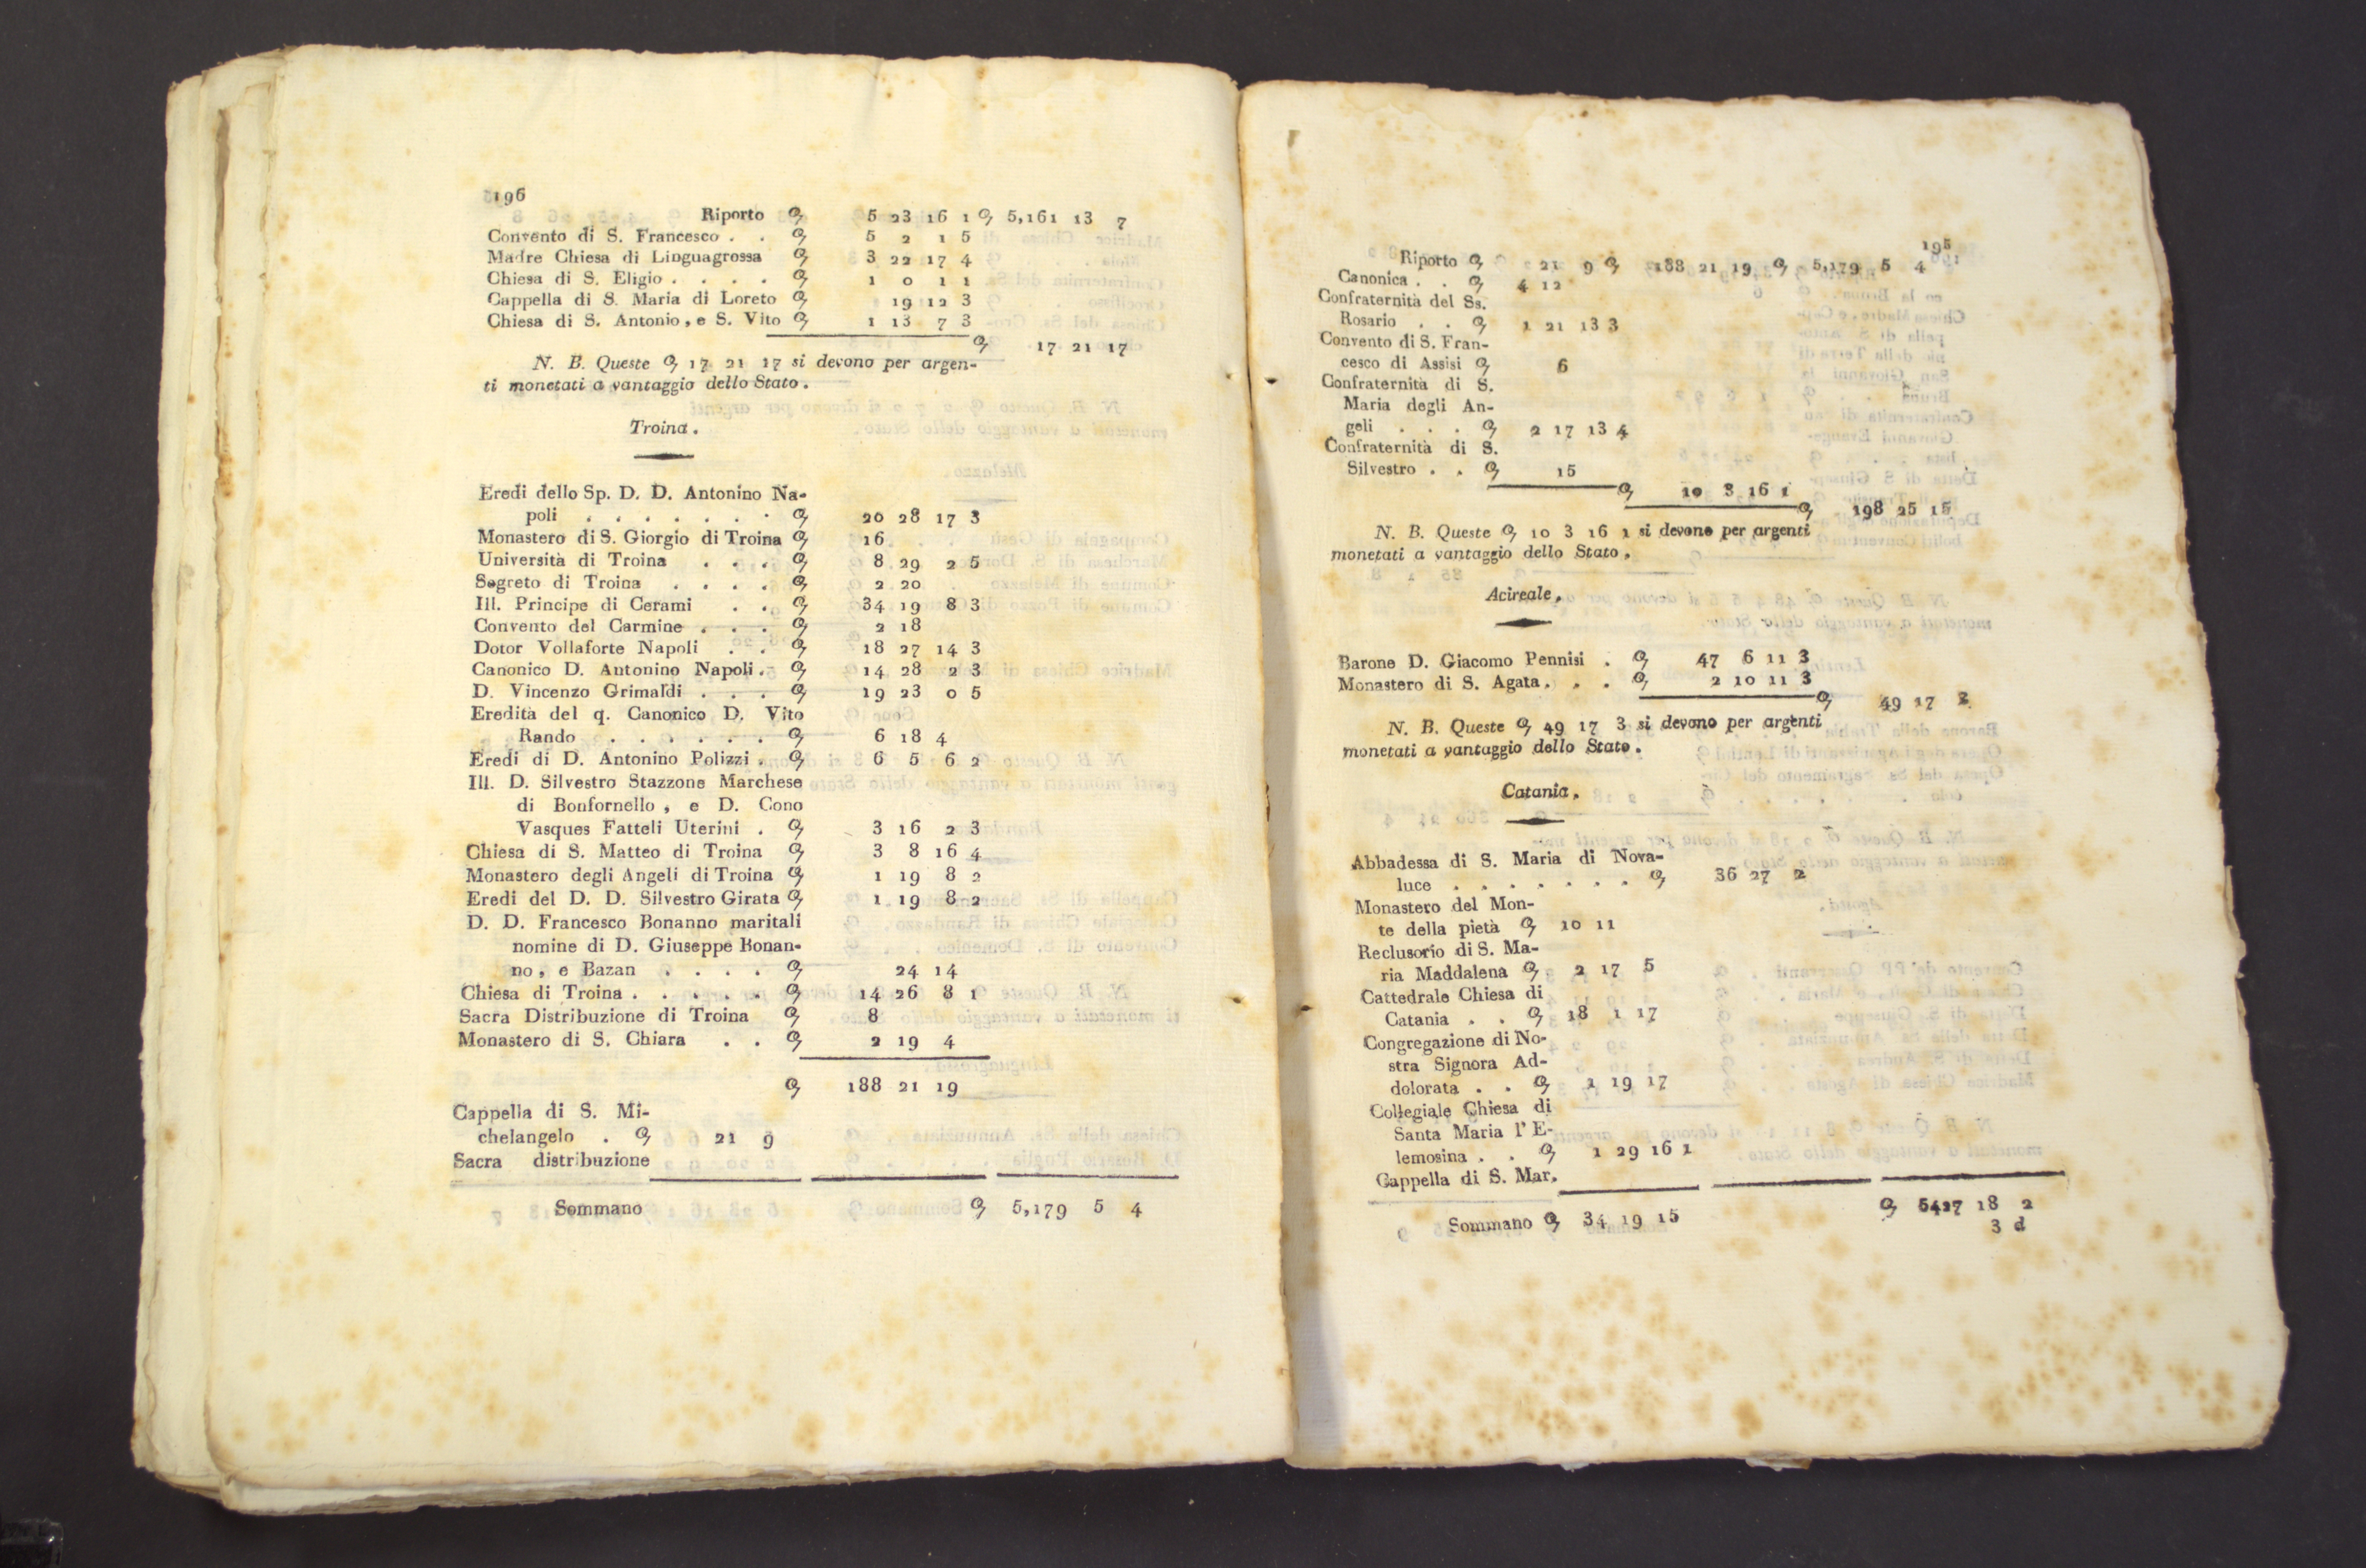 196
Riporto 5 23 16 1 5,161 13 7
Convento di S. Francesco . . 5 2 1 5
Madre Chiesa di Linguagrossa 3 22 17 4
Chiesa di S. Eligio . . . . 1 0 1 1
Cappella di S. Maria di Loreto 19 12 3
Chiesa di S. Antonio, e S. Vito 1 13 7 3
17 21 17
N. B. Queste 17 21 17 si devono per argen-
ti monetati a vantaggio dello Stato.
Troina.
Eredi dello Sp. D. D. Antonino Na-
poli . . . . . . . 20 28 17 3
Monastero di S. Giorgio di Troina 16
Università di Troina . . . 8 29 2 5
Segreto di Troina . . . . 2 20
Ill. Principe di Cerami . . 34 19 8 3
Convento del Carmine . . . 2 18
Dotor Vollaforte Napoli . . 18 27 14 3
Canonico D. Antonino Napoli . 14 28 2 3
D. Vincenzo Grimaldi . . . 19 23 0 5
Eredità del q. Canonico D. Vito
Rando . . . . . . 6 18 4
Eredi di D. Antonino Polizzi . 6 5 6 2
Ill. D. Silvestro Stazzone Marchese
di Bonfornello, e D. Cono
Vasques Fatteli Uterini . 3 16 2 3
Chiesa di S. Matteo di Troina 3 8 16 4
Monastero degli Angeli di Troina 1 19 8 2
Eredi del D. D. Silvestro Girata 1 19 8 2
D. D. Francesco Bonanno maritali
nomine di D. Giuseppe Bonan-
no, e Bazan . . . . 24 14
Chiesa di Troina . . . . . 14 26 8 1
Sacra Distribuzione di Troina 8
Monastero di S. Chiara . . 2 19 4
188 21 19
Cappella di S. Mi-
chelangelo . 21 9
Sacra distribuzione
Sommano 5,179 5 4
195
Riporto 21 9 188 21 19 5,179 5 4
Canonica . . 4 12
Confraternità del Ss.
Rosario . . 1 21 13 3
Convento di S. Fran-
cesco di Assisi 6
Confraternità di S.
Maria degli An-
geli . . . 2 17 13 4
Confraternità di S.
Silvestro . . 15
10 3 16 1
198 25 15
N. B. Queste 10 3 16 1 si devono per argenti
monetati a vantaggio dello Stato.
Acireale.
Barone D. Giacomo Pennisi . 47 6 11 3
Monastero di S. Agata . . . 2 10 11 3
49 17 3
N. B. Queste 49 17 3 si devono per argenti
monetati a vantaggio dello Stato.
Catania.
Abbadessa di S. Maria di Nova-
luce . . . . . . . 36 27 2
Monastero del Mon-
te della pietà 10 11
Reclusorio di S. Ma-
ria Maddalena 2 17 5
Cattedrale Chiesa di
Catania . . 18 1 17
Congregazione di No-
stra Signora Ad-
dolorata . . 1 19 17
Collegiale Chiesa di
Santa Maria l' E-
lemosina . . 1 29 16 1
Cappella di S. Mar.
Sommano 34 19 15 5427 18 2
3 d